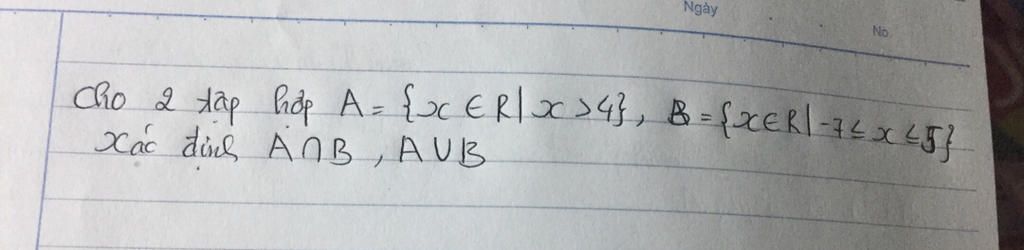 Ngày
No.
Cho 2 tập hợp A = {x ∈ R | x > 4}, B = {x ∈ R | -7 ≤ x ≤ 5}
Xác định A ∩ B, A ∪ B